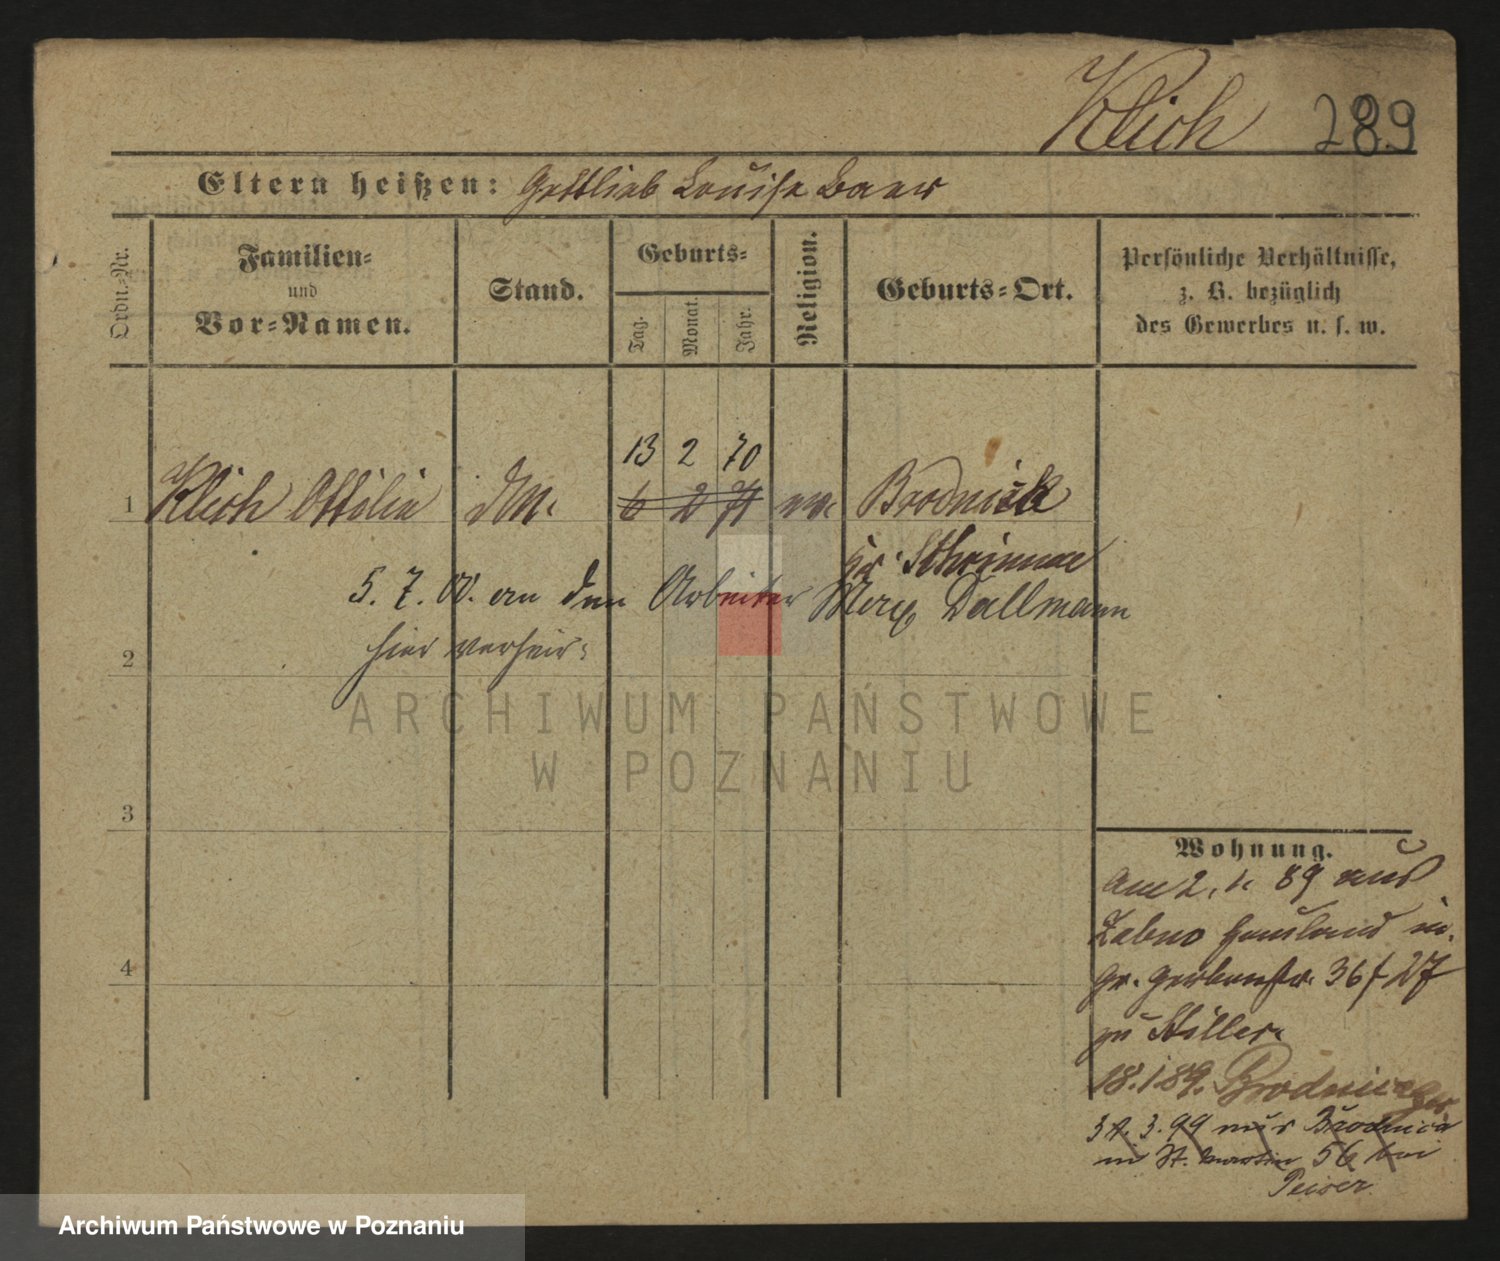 Klich 289
Eltern heißen: Gottlieb Louise Baer
Ordn.-Nr.
Familien-
und
Vor-Namen.
Stand.
Geburts-
Tag.
Monat.
Jahr.
Religion.
Geburts-Ort.
Persönliche Verhältnisse,
z. B. bezüglich
des Gewerbes u. s. w.
13 2 70
1 Klich Ottilie 6 2 71 ev. Brodnica
Kr. Schrimm
5. 7. 00. an den Arbeiter Max Dallmann
hier verheir.
2
3
4
Wohnung.
am 2. 1. 89 aus
Zabno Hauland in
gr. Gerberstr. 36 / 27
zu Stiller.
18.1.89. Brodnica
31. 3. 99 aus Brodnica
in St. Martin 56 bei
Peiser
ARCHIWUM PAŃSTWOWE
W POZNANIU
Archiwum Państwowe w Poznaniu